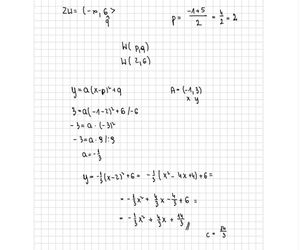 ZW = (-∞, 6>
q
p = \frac{-1+5}{2} = \frac{4}{2} = 2
W(p,q)
W(2,6)
y = a(x-p)²+q
A = (-1,3)
x y
3 = a(-1-2)²+6 /-6
-3 = a·(-3)²
-3 = a·9 /:9
a = -\frac{1}{3}
y = -\frac{1}{3}(x-2)²+6 = -\frac{1}{3}(x²-4x+4)+6 =
= -\frac{1}{3}x² + \frac{4}{3}x - \frac{4}{3} + 6 =
= -\frac{1}{3}x² + \frac{4}{3}x + \frac{14}{3} //